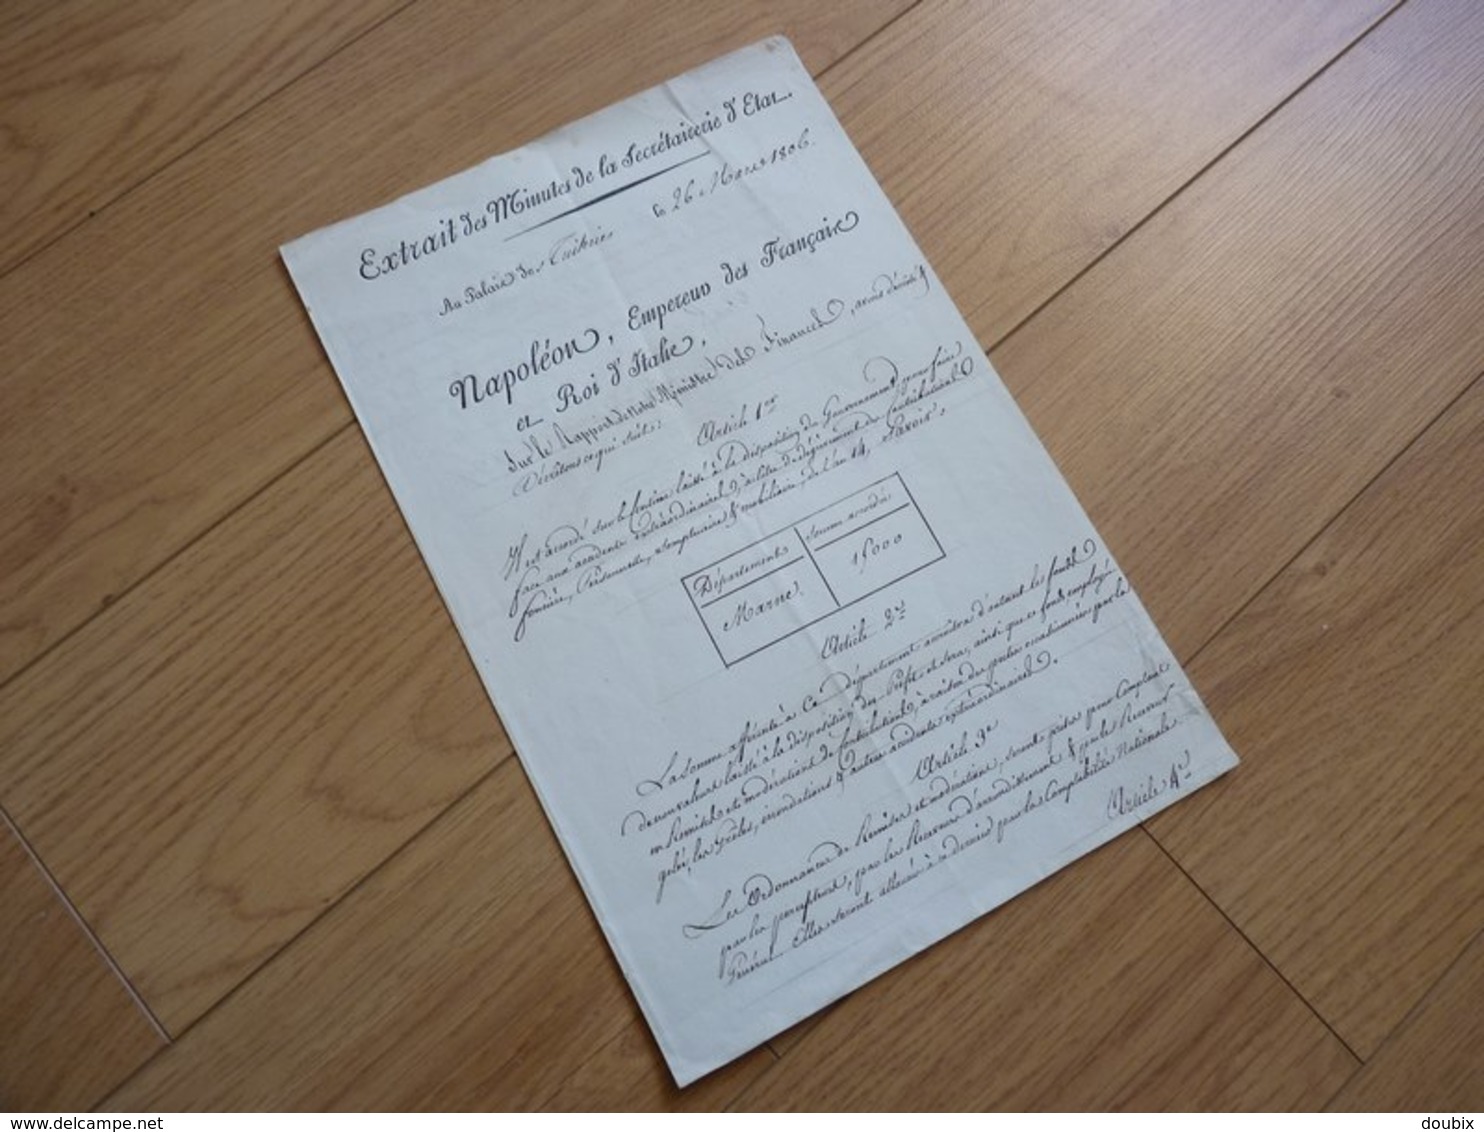 Extrait des Minutes de la Secrétairerie d'Etat.
Au Palais des Tuileries le 26 Mars 1806.
Napoléon, Empereur des Français
et Roi d'Italie,
Sur le Rapport de Notre Ministre des Finances, avons décrété &
Décrétons ce qui suit:
Article 1er
Il est accordé sur le fonds laissé à la disposition du Gouvernement, pour faire
face aux accidents extraordinaires, à titre de dégrèvement de Contributions
foncière, Personnelle, somptuaire & mobiliaire, de l'an 14, Savoir.
Département Somme accordée
Marne. 15000
Article 2e
La somme affectée à Ce Département accroîtra d'autant les fonds
de non valeurs laissé à la disposition du Préfet et sera, ainsi que ce fonds, employé
en Remises et modérations de Contributions, à raison des pertes occasionnées par la
gelée, les Grêles, inondations & autres accidents extraordinaires.
Article 3e
Les Ordonnances de Remises et modérations, seront prises pour Comptant
par les percepteurs, par les Receveurs d'arrondissement & par le Receveur
Général Elles seront allouées à ce dernier par la Comptabilité Nationale
Article 4e
www.delcampe.net
doubix